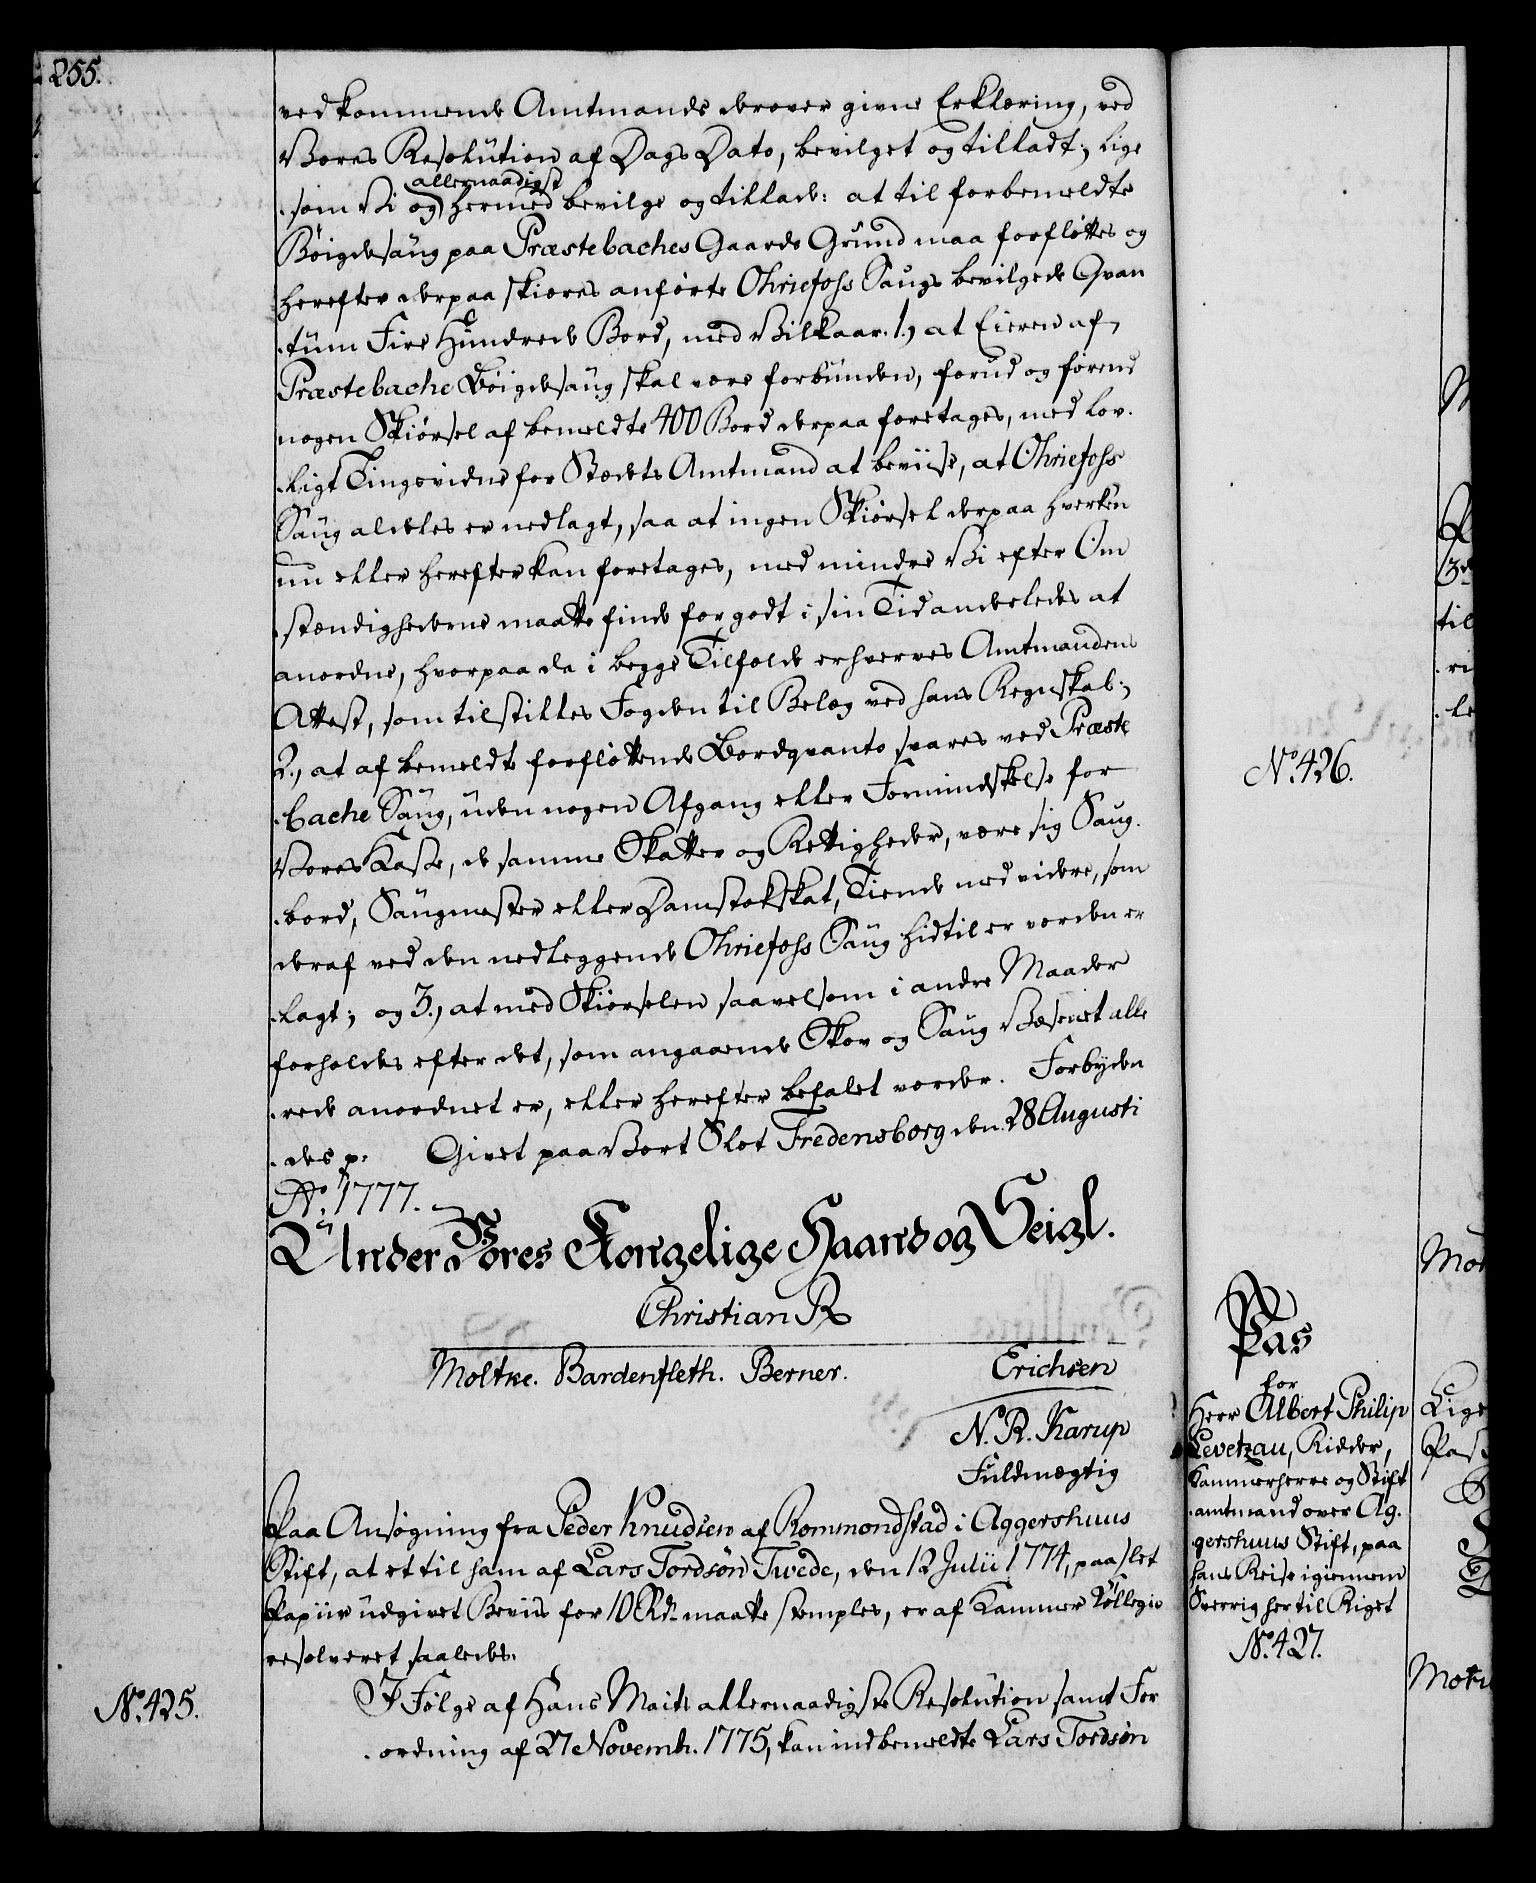 255.
vedkommende Amtmands derover givne Erklæring, ved
Vores Resolution af Dags Dato, bevilget og tilladt; lige
allernaadigst
som Vi og hermed bevilge og tillade: at til forbemeldte
Bøigdesaug paa Præstebaches Gaards Grund maa forfløttes og
herefter derpaa skiæres anførte Ohriefoss Saugs bevilgede Qvan
tum Fire Hundrede Bord, med Vilkaar. 1, at Eieren af
Præstebache Bøigdesaug skal være forbunden, forud og førend
nogen Skiørsel af bemeldte 400 Bord derpaa foretages, med lov.
ligt Tingsvidne for Stædets Amtmand at beviise, at Ohriefoss
Saug aldeles er nedlagt, saa at ingen Skiørsel derpaa hverken
nu eller herefter kan foretages, med mindre Vi efter Om
stændighederne maatte finde for godt i sin Tid anderledes at
anordne, hvorpaa da i begge Tilfælde erhverves Amtmandens
Attest, som tilstilles Fogden til Belæg ved hans Regnskab;
2., at af bemeldte forfløttende Bordqvanto svares ved Præste
bache Saug, uden nogen Afgang eller Formindskelse for
Vores Kasse, de samme Skatter og Rettigheder, være sig Saug.
bord, Saugmester eller Damstokskat, Tiende med videre, som
deraf ved den nedleggende Ohriefoss Saug hidtil er vorden er
lagt; og 3., at med Skiørselen saavelsom i andre Maader
forholdes efter det, som angaaende Skov og Saug Væsenet alle
rede anordnet er, eller herefter befalet vorder. Forbyden
des p. Givet paa Vort Slot Fredensborg den 28 Augusti
Ao. 1777.
Under Vores Kongelige Haand og Seigl.
Christian R
Moltke. Bardenfleth. Berner. Erichsen
N. R. Karup
Fuldmægtig
Paa Ansøgning fra Peder Knudsen af Rommondstad i Aggershuus
Stift, at et til ham af Lars Tordsøn Twede, den 12 Julii 1774, paa slet
Papiir udgivet Beviis for 10 Rd. maatte stemples, er af Kammer Kollegio
resolveret saaledes.
No. 425.
I Følge af Hans Maits allernaadigste Resolution samt For
ordning af 27 Novemb. 1775, kan indbemeldte Lars Tordsøn
No. 426.
Pas
for
Herr Albert Philip
Levetzau, Ridder,
Kammerherre og Stift
amtmand over Ag.
gershuus Stift, paa
hans Reise igiennem
Sverrig her til Riget
No. 427.
til
Lige
Pas